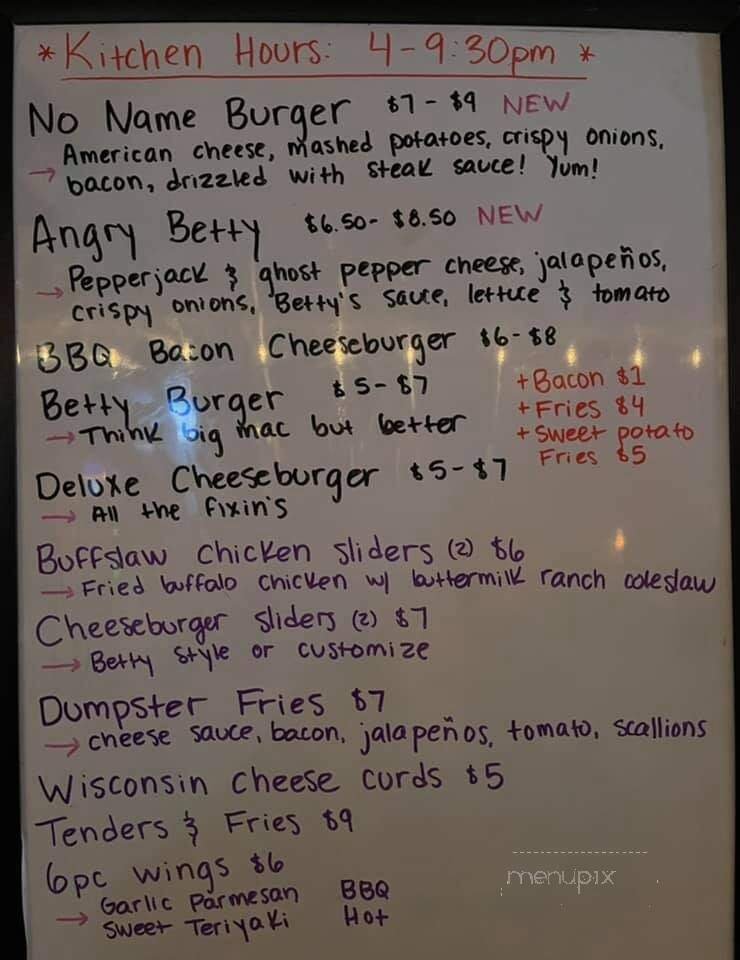 * Kitchen Hours: 4-9:30pm *
No Name Burger $7-$9 NEW
→ American cheese, mashed potatoes, crispy onions,
bacon, drizzled with steak sauce! Yum!
Angry Betty $6.50-$8.50 NEW
→ Pepperjack & ghost pepper cheese, jalapeños,
crispy onions, Betty's sauce, lettuce & tomato
BBQ Bacon Cheeseburger $6-$8
Betty Burger $5-$7
→ Think big mac but better
+Bacon $1
+Fries $4
+Sweet potato
Fries $5
Deluxe Cheeseburger $5-$7
→ All the fixin's
Buffslaw chicken sliders (2) $6
→ Fried buffalo chicken w/ buttermilk ranch coleslaw
Cheeseburger sliders (2) $7
→ Betty style or customize
Dumpster Fries $7
→ cheese sauce, bacon, jalapeños, tomato, scallions
Wisconsin cheese curds $5
Tenders & Fries $9
6pc wings $6
→ Garlic Parmesan BBQ
Sweet Teriyaki Hot
menupix